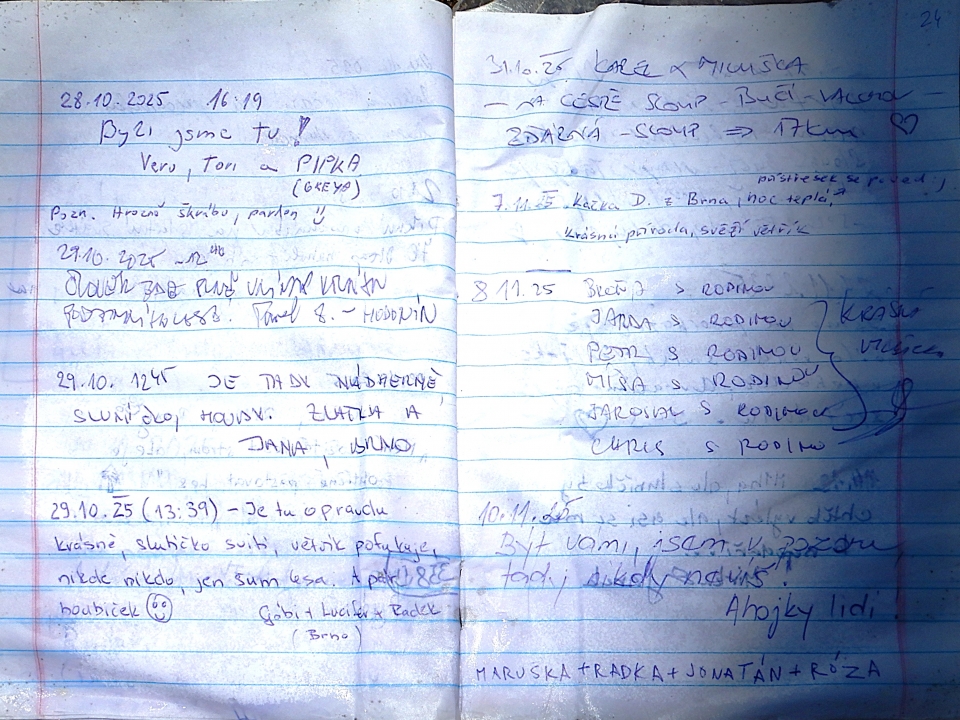 28.10.2025 16:19
Byli jsme tu!
Veru, Tom a PIPKA
(GREYA)
Pozn. Hrozně škrábu, pardon
29.10.2025
Pavel HODONÍN
29.10. 12⁴⁵ JE TADY NÁDHERNĚ,
SLUNÍČKO, HOUBY. ZLATKA A
JANA, BRNO
29.10.25 (13:39) – Je tu opravdu
krásně, sluníčko svítí, větřík pofukuje,
nikde nikdo, jen šum lesa. A pár
houbiček
Gábi + Lucifer + Radek
(Brno)
24
31.10.25 KAREL & MILUŠKA
– NA CESTĚ SLOUP –
ŽĎÁRNÁ – SLOUP ⇒ 17km ♡
přístřešek se povedl
7.11.25 Kačka D. z Brna, noc teplá,
krásná příroda, svěží větřík
8 11.25 S RODINOU
JARDA S RODINOU
PETR S RODINOU
MÍŠA S RODINOU
JAROSLAV S RODINOU
CHRIS S RODINOU
KRÁSNÝ
10.11.25
Být vámi, jsem v pozoru,
tady nikdy nevíš.
Ahojky lidi
MARUSKA + RADKA + JONATÁN + RÓZA